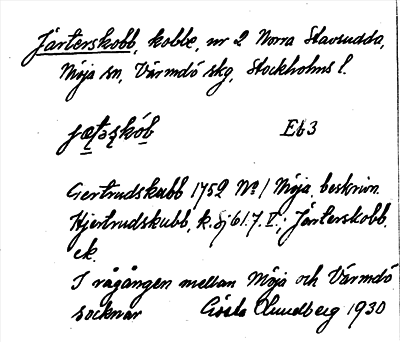 Järterskobb, kobbe, nr 2 Norra Stavsudda,
Möja sn, Värmdö skg, Stockholms l.
Eb3
Gertrudskubb 1752 No 1 Möja, beskrivn.
Hjertrudskubb, k. Sj 61.7.V.; Järterskobb,
ek.
I rågången mellan Möja och Värmdö
socknar Gösta Lundberg 1930